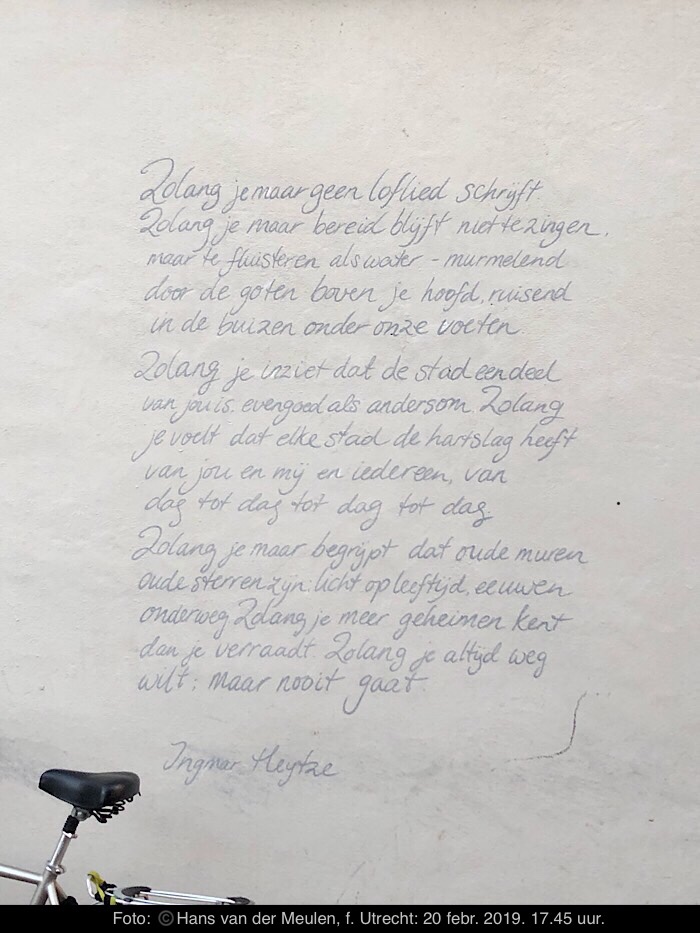 Zolang je maar geen loflied schrijft.
Zolang je maar bereid blijft niet te zingen,
maar te fluisteren als water - murmelend
door de goten boven je hoofd, ruisend
in de buizen onder onze voeten.
Zolang je inziet dat de stad een deel
van jou is, evengoed als andersom. Zolang
je voelt dat elke stad de hartslag heeft
van jou en mij en iedereen, van
dag tot dag tot dag tot dag.
Zolang je maar begrijpt dat oude muren
oude sterren zijn: licht op leeftijd, eeuwen
onderweg. Zolang je meer geheimen kent
dan je verraadt. Zolang je altijd weg
wilt; maar nooit gaat.
Ingmar Heytze
Foto: ©Hans van der Meulen, f. Utrecht: 20 febr. 2019. 17.45 uur.